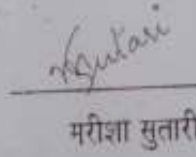 मरीशा सुतारी